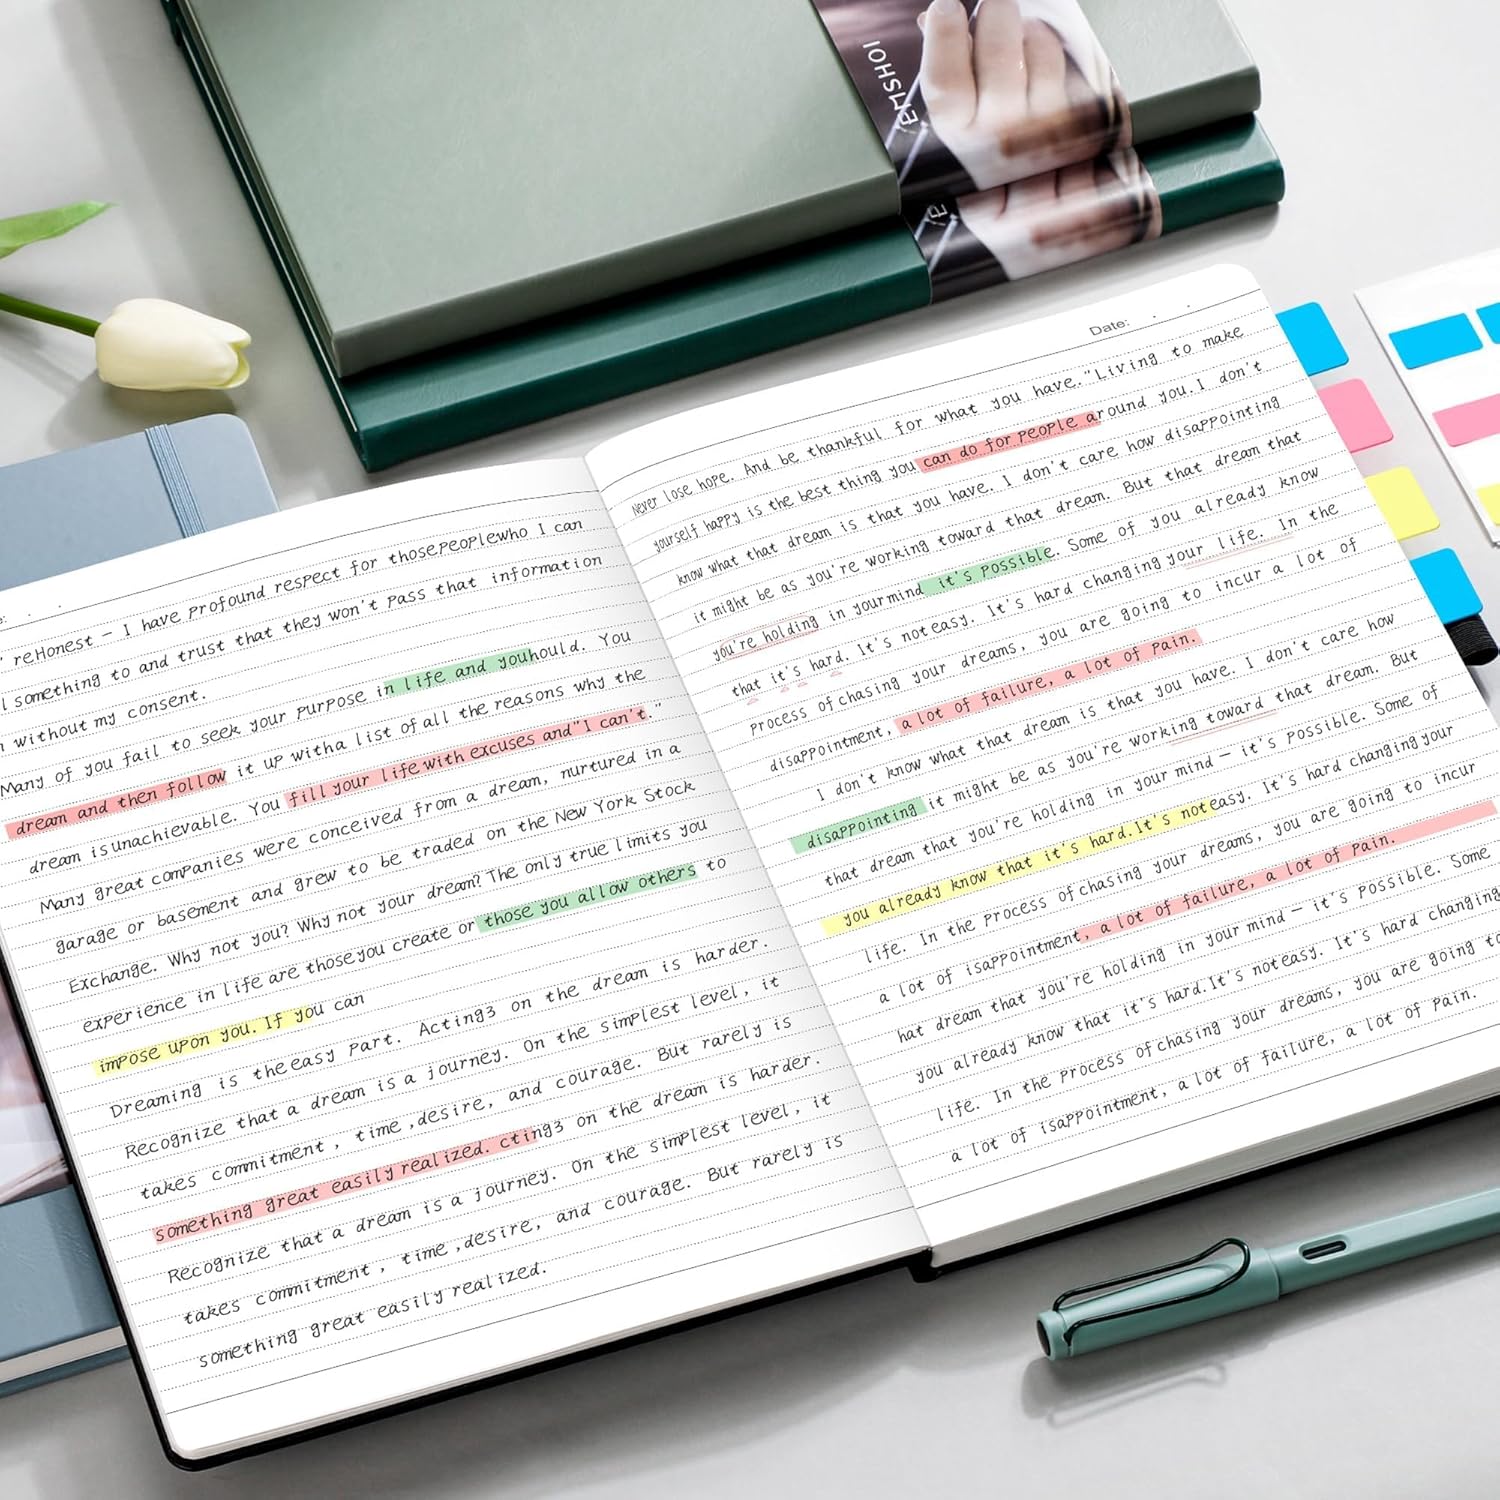 EMSHOI
Date:
' reHonest — I have profound respect for thosepeoplewho I can
something to and trust that they won't pass that information
without my consent.
Many of you fail to seek your purpose in life and youhould. You
dream and then follow it up witha list of all the reasons why the
dream isunachievable. You fill your life with excuses and"I can't."
Many great companies were conceived from a dream, nurtured in a
garage or basement and grew to be traded on the New York Stock
Exchange. Why not you? Why not your dream? The only true limits you
experience in life are thoseyou create or those you allow others to
impose upon you. If you can
Dreaming is theeasy part. Acting3 on the dream is harder.
Recognize that a dream is a journey. On the simplest level, it
takes commitment , time ,desire, and courage. But rarely is
something great easily realized. cting3 on the dream is harder.
Recognize that a dream is a journey. On the simplest level, it
takes commitment , time ,desire, and courage. But rarely is
something great easily realized.
Never lose hope. And be thankful for what you have."Living to make
yourself happy is the best thing you can do for people around you.I don't
know what that dream is that you have. I don't care how disappointing
it might be as you're working toward that dream. But that dream that
you're holding in yourmind it's possible. Some of you already know
that it's hard. It's noteasy. It's hard changing your life. In the
process of chasing your dreams, you are going to incur a lot of
disappointment, a lot of failure, a lot of pain.
I don't know what that dream is that you have. I don't care how
disappointing it might be as you're working toward that dream. But
that dream that you're holding in your mind — it's possible. Some of
you already know that it's hard.It's noteasy. It's hard changing your
life. In the process of chasing your dreams, you are going to incur
a lot of isappointment, a lot of failure, a lot of pain.
hat dream that you're holding in your mind — it's possible. Some
you already know that it's hard.It's noteasy. It's hard changing
life. In the process of chasing your dreams, you are going to
a lot of isappointment, a lot of failure, a lot of pain.